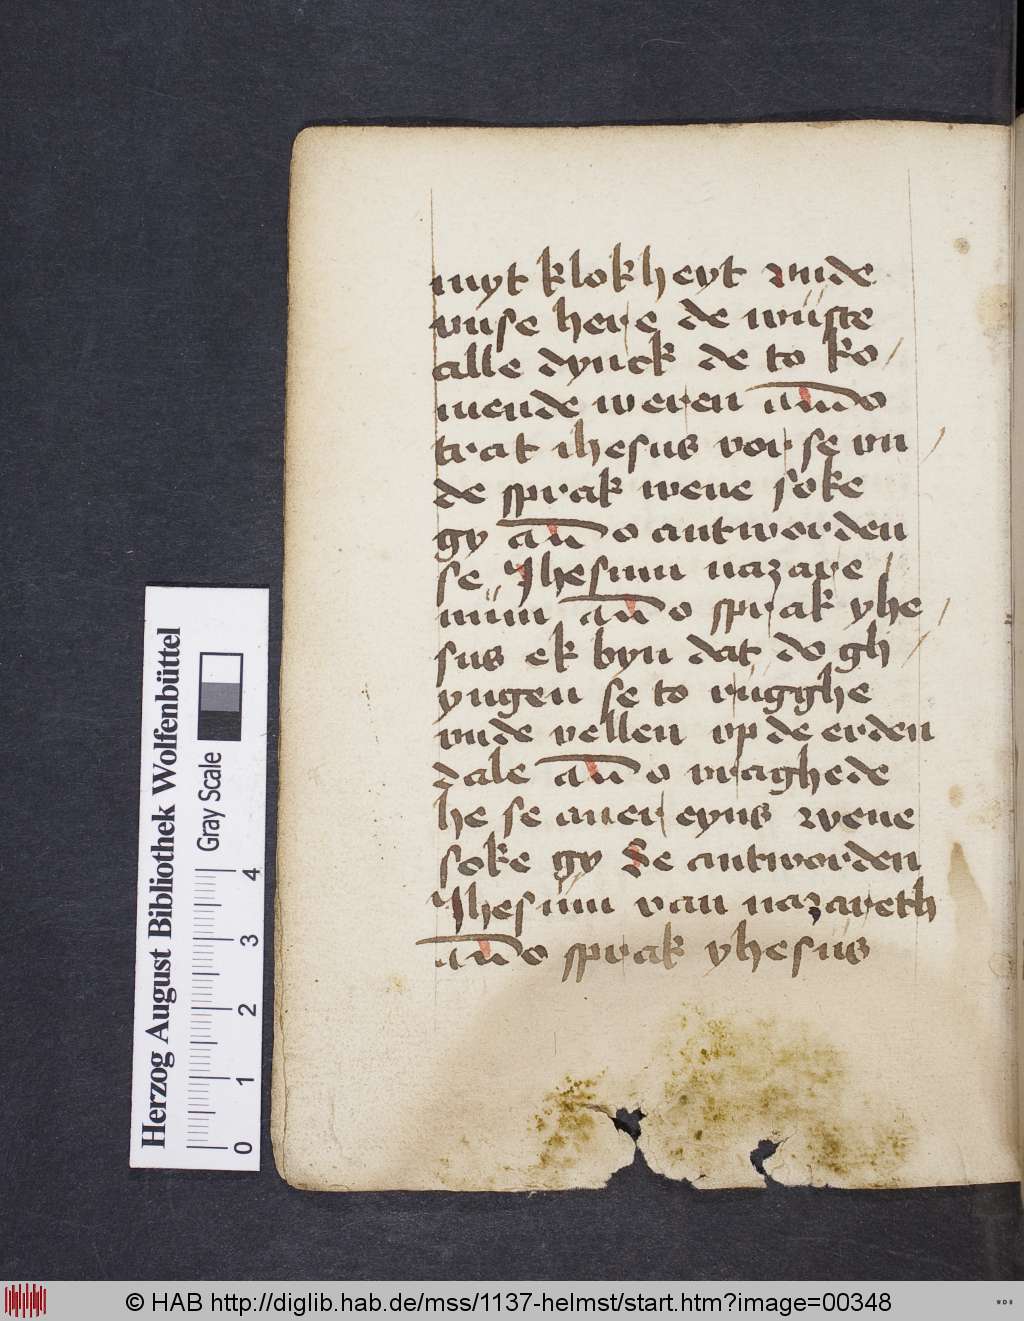 myt klokheyt vnde
vnse here de wüste
alle dynck de to ko/
mende weren an̄o
trat ihesus vor se vn/
de sprak wene soke
gy an̄o antworden
se Jhesum nazare/
nüm an̄o sprak yhe/
sus ek byn dat do gh/
yngen se to rügghe
vnde vellen vp de erden
dale an̄o vraghede
he se auer eyns wene
soke gy Se antworden
Jhesüm van nazareth
an̄o sprak yhesüs
Herzog August Bibliothek Wolfenbüttel
Gray Scale
0 1 2 3 4
© HAB http://diglib.hab.de/mss/1137-helmst/start.htm?image=00348